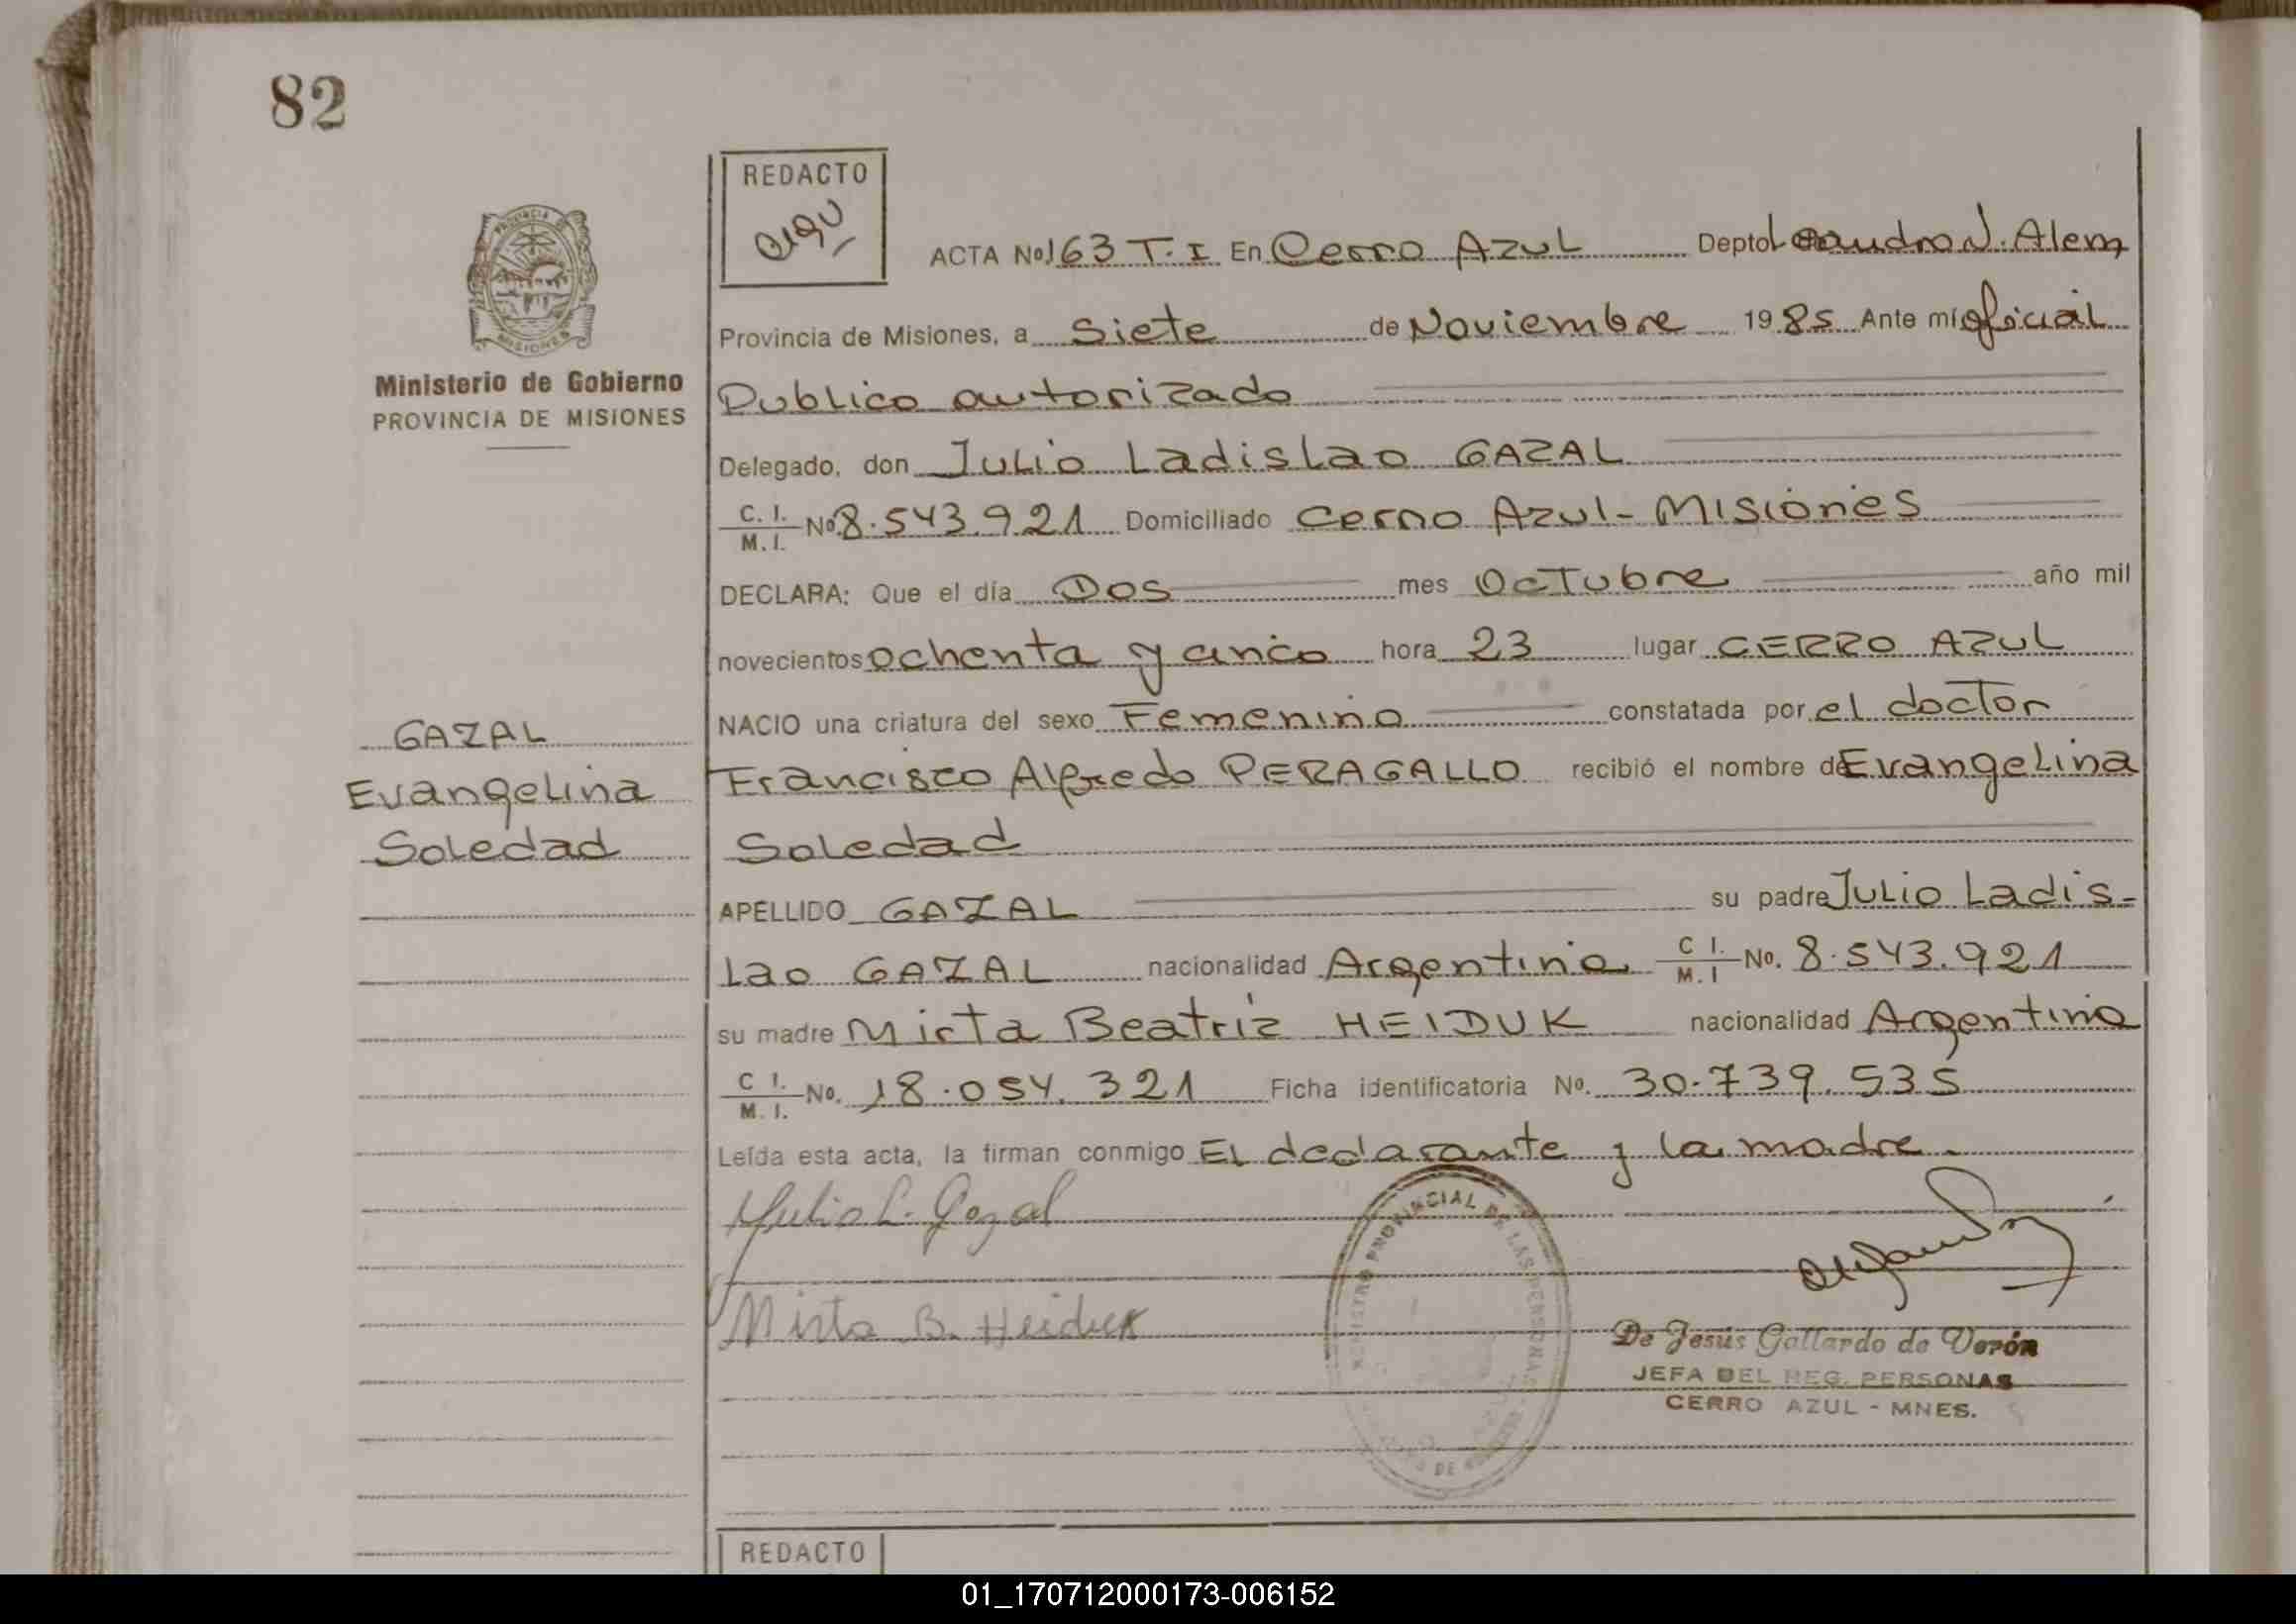 82
REDACTO
PROVINCIA DE
MISIONES
Ministerio de Gobierno
PROVINCIA DE MISIONES
ACTA No 163 T. I En Cerro Azul Depto Leandro N. Alem,
Provincia de Misiones, a Siete de Noviembre 1985 Ante mí oficial
Publico autorizado
Delegado, don Julio Ladislao GAZAL
C. I. / M. I. No 8.543.921 Domiciliado Cerro Azul - Misiones
DECLARA: Que el día Dos mes Octubre año mil
novecientos ochenta y cinco hora 23 lugar CERRO AZUL
NACIO una criatura del sexo Femenino constatada por el doctor
Francisco Alfredo PERAGALLO recibió el nombre de Evangelina
Soledad
GAZAL
Evangelina
Soledad
APELLIDO GAZAL su padre Julio Ladis-
lao GAZAL nacionalidad Argentina C I. / M. I No. 8.543.921
su madre Mirta Beatriz HEIDUK nacionalidad Argentina
C I. / M. I. No. 18.054.321 Ficha identificatoria No. 30.739.535
Leída esta acta, la firman conmigo El declarante y la madre.
Julio L. Gazal
Mirta B. Heiduk
REGISTRO PROVINCIAL DE LAS PERSONAS
De Jesús Gallardo de Verón
JEFA DEL REG. PERSONAS
CERRO AZUL - MNES.
REDACTO
01_170712000173-006152